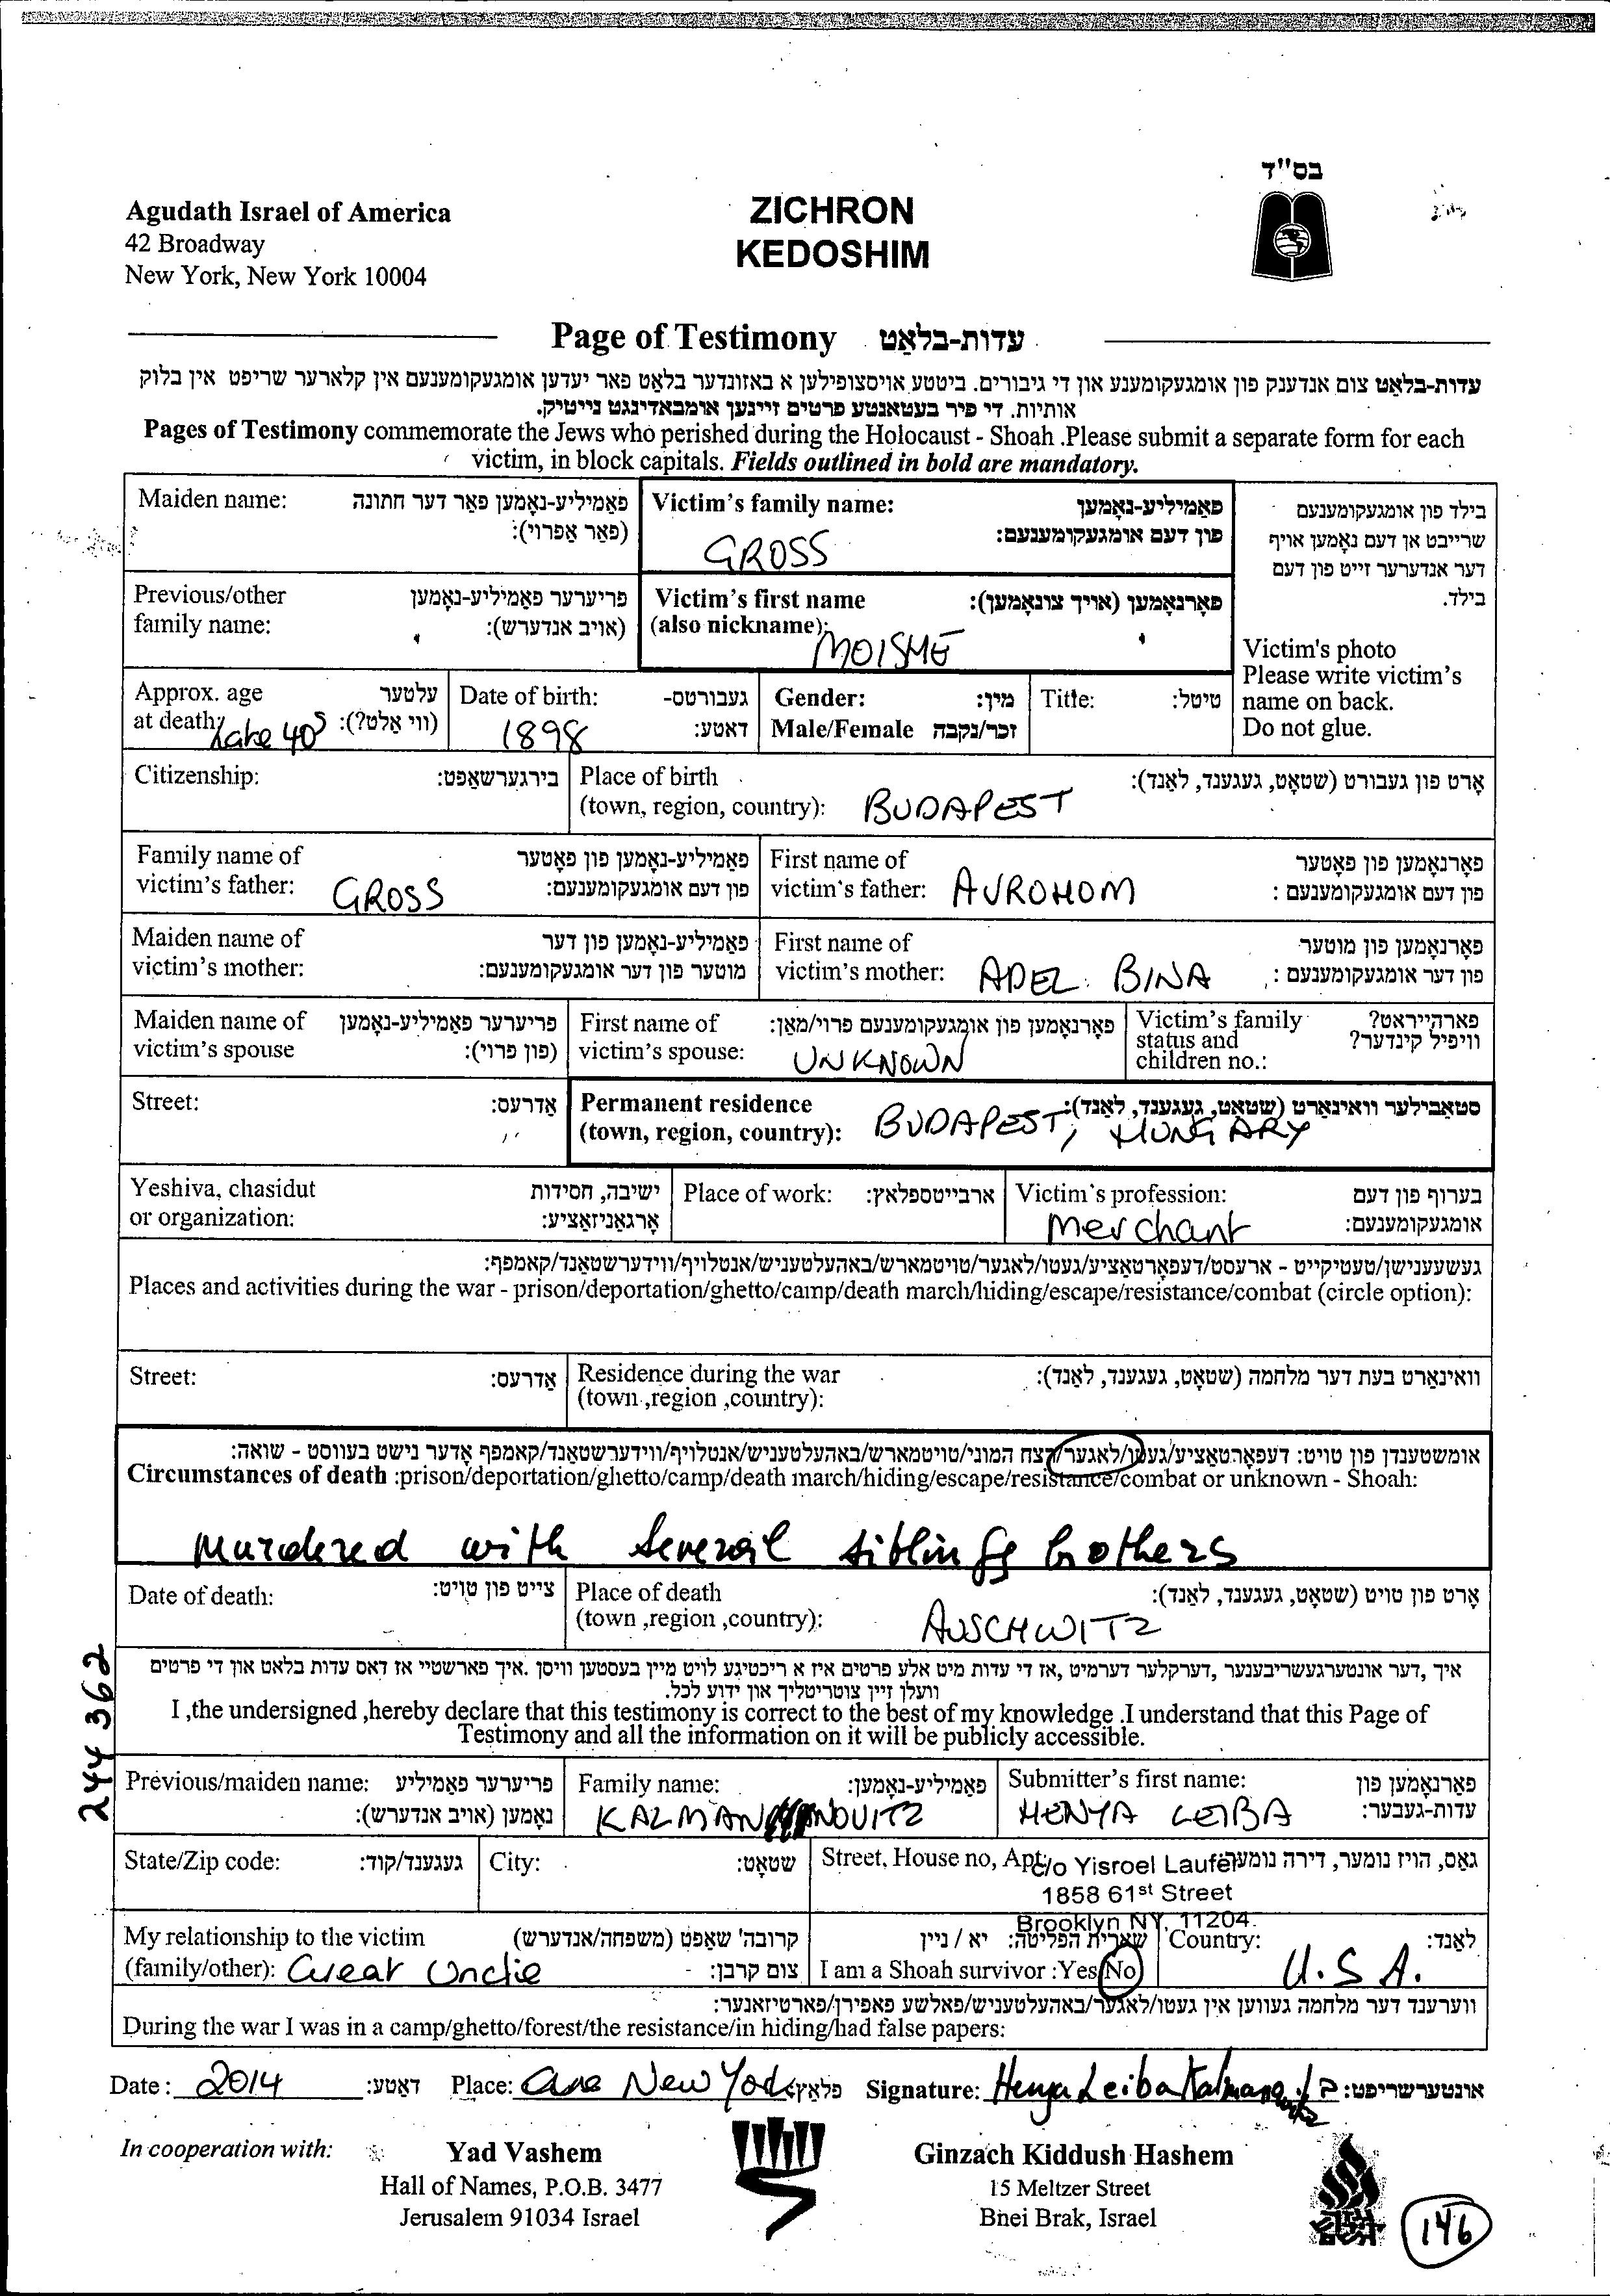 בס"ד
Agudath Israel of America
42 Broadway
New York, New York 10004
ZICHRON
KEDOSHIM
Page of Testimony עדות-בלאַט
עדות-בלאַט צום אנדענק פון אומגעקומענע און די גיבורים. ביטטע אויסצופילען א באזונדער בלאט פאר יעדען אומגעקומענעם אין קלארער שריפט אין בלוק
אותיות. די פיר בעטאנטע פרטים זיינען אומבאדינגט נייטיק.
Pages of Testimony commemorate the Jews who perished during the Holocaust - Shoah .Please submit a separate form for each
victim, in block capitals. Fields outlined in bold are mandatory.
Maiden name: פאַמיליע-נאָמען פאַר דער חתונה
(פאַר אַפרוי):
Victim's family name: פאַמיליע-נאָמען
פון דעם אומגעקומענעם:
GROSS
בילד פון אומגעקומענעם
שרייבט אן דעם נאָמען אויף
דער אנדערער זייט פון דעם
בילד.
Previous/other פריערער פאַמיליע-נאָמען
family name: (אויב אנדערש):
Victim's first name פאָרנאָמען (אויך צונאָמען):
(also nickname):
MOISHE
Victim's photo
Please write victim's
name on back.
Do not glue.
Approx. age עלטער
at death: (ווי אַלט?):
Late 40s
Date of birth: געבורטס-
דאטע:
1898
Gender: מין:
Male/Female זכר/נקבה
Title: טיטל:
Citizenship: בירגערשאַפט:
Place of birth אָרט פון געבורט (שטאָט, געגענד, לאַנד):
(town, region, country): BUDAPEST
Family name of פאַמיליע-נאָמען פון פאָטער
victim's father: פון דעם אומגעקומענעם:
GROSS
First name of פאָרנאָמען פון פאָטער
victim's father: פון דעם אומגעקומענעם :
AVROHOM
Maiden name of פאַמיליע-נאָמען פון דער
victim's mother: מוטער פון דער אומגעקומענעם:
First name of פאָרנאָמען פון מוטער
victim's mother: פון דער אומגעקומענעם :
ADEL BINA
Maiden name of פריערער פאַמיליע-נאָמען
victim's spouse (פון פרוי):
First name of פאָרנאָמען פון אומגעקומענעם פרוי/מאַן:
victim's spouse: UNKNOWN
Victim's family פארהייראט?
status and וויפיל קינדער?
children no.:
Street: אַדרעס:
Permanent residence סטאַבילער וואוינאָרט (שטאָט, געגענד, לאַנד):
(town, region, country): BUDAPEST, HUNGARY
Yeshiva, chasidut ישיבה, חסידות
or organization: אָרגאַניזאַציע:
Place of work: ארבייטספלאץ:
Victim's profession: בערוף פון דעם
אומגעקומענעם:
Merchant
געשעענישן/טעטיקייט - ארעסט/דעפאָרטאַציע/געטו/לאגער/טויטמארש/באהעלטעניש/אנטלויף/ווידערשטאַנד/קאמפף:
Places and activities during the war - prison/deportation/ghetto/camp/death march/hiding/escape/resistance/combat (circle option):
Street: אַדרעס:
Residence during the war וואוינאָרט בעת דער מלחמה (שטאָט, געגענד, לאַנד):
(town ,region ,country):
אומשטענדן פון טויט: דעפאָרטאַציע/געטו/לאגער/רצח המוני/טויטמארש/באהעלטעניש/אנטלויף/ווידערשטאַנד/קאמפף אָדער נישט בעווסט - שואה:
Circumstances of death :prison/deportation/ghetto/camp/death march/hiding/escape/resistance/combat or unknown - Shoah:
Murdered with several siblings brothers
Date of death: צייט פון טויט:
Place of death אָרט פון טויט (שטאָט, געגענד, לאַנד):
(town ,region ,country): AUSCHWITZ
איך ,דער אונטערגעשריבענער ,דערקלער דערמיט ,אז די עדות מיט אלע פרטים איז א ריכטיגע לויט מיין בעסטען וויסן .איך פארשטיי אז דאס עדות בלאט און די פרטים
וועלן זיין צוטריטליך און ידוע לכל.
I ,the undersigned ,hereby declare that this testimony is correct to the best of my knowledge .I understand that this Page of
Testimony and all the information on it will be publicly accessible.
244 362
Previous/maiden name: פריערער פאַמיליע
נאָמען (אויב אנדערש):
Family name: פאַמיליע-נאָמען:
KALMAN NOVITZ
Submitter's first name: פאָרנאָמען פון
עדות-געבער:
HENYA LEIBA
State/Zip code: געגענד/קוד:
City: שטאָט:
Street, House no, Apt גאַס, הויז נומער, דירה נומער
c/o Yisroel Laufer
1858 61st Street
Brooklyn NY, 11204
My relationship to the victim קרובה' שאַפט (משפחה/אנדערש)
(family/other): Great Uncle צום קרבן:
שארית הפליטה: יא / ניין
I am a Shoah survivor :Yes/No
Country: לאַנד:
U.S.A.
ווערענד דער מלחמה געווען אין געטו/לאַגער/באַהעלטעניש/פאלשע פאפירן/פארטיזאנער:
During the war I was in a camp/ghetto/forest/the resistance/in hiding/had false papers:
Date: 2014 דאַטע: Place: New York פלאַץ Signature: Henya Leiba Kalmanowitz אונטערשריפט:
In cooperation with:
Yad Vashem
Hall of Names, P.O.B. 3477
Jerusalem 91034 Israel
Ginzach Kiddush Hashem
15 Meltzer Street
Bnei Brak, Israel
146